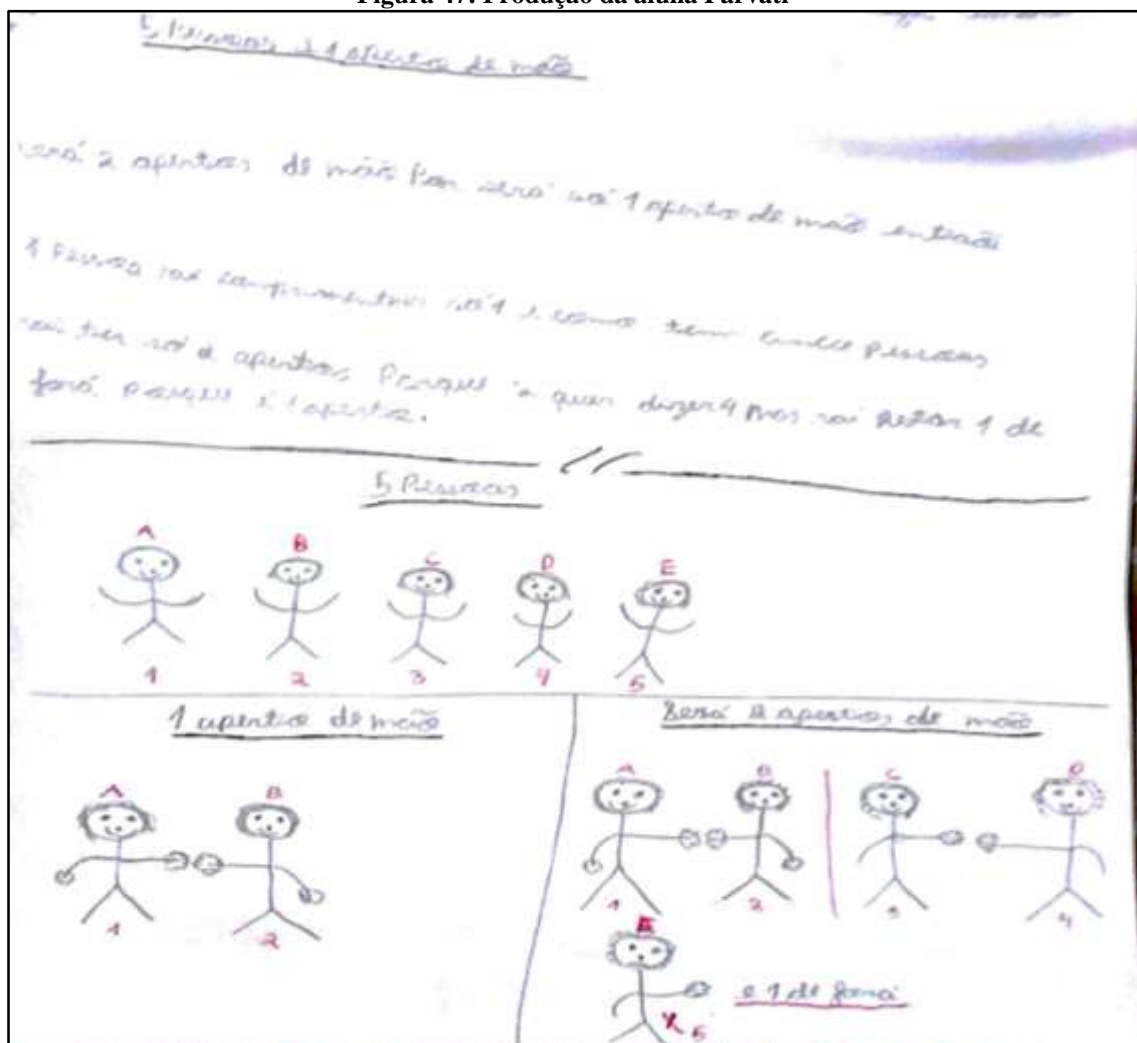 Figura 47: Produção da aluna Parvati
5 Pessoas e 1 aperto de mão
será 2 apertos de mão Por será só 1 aperto de mão
1 Pessoa vai só 1 e como tem cinco Pessoas
vai ter só 2 apertos Porque quer dizer 4 mas vai 1 de
fora Porque é 1 aperto.
5 Pessoas
A B C D E
1 2 3 4 5
1 aperto de mão
Será 2 apertos de mão
A B
A B C D
1 2
1 2 3 4
E
e 1 de fora
5